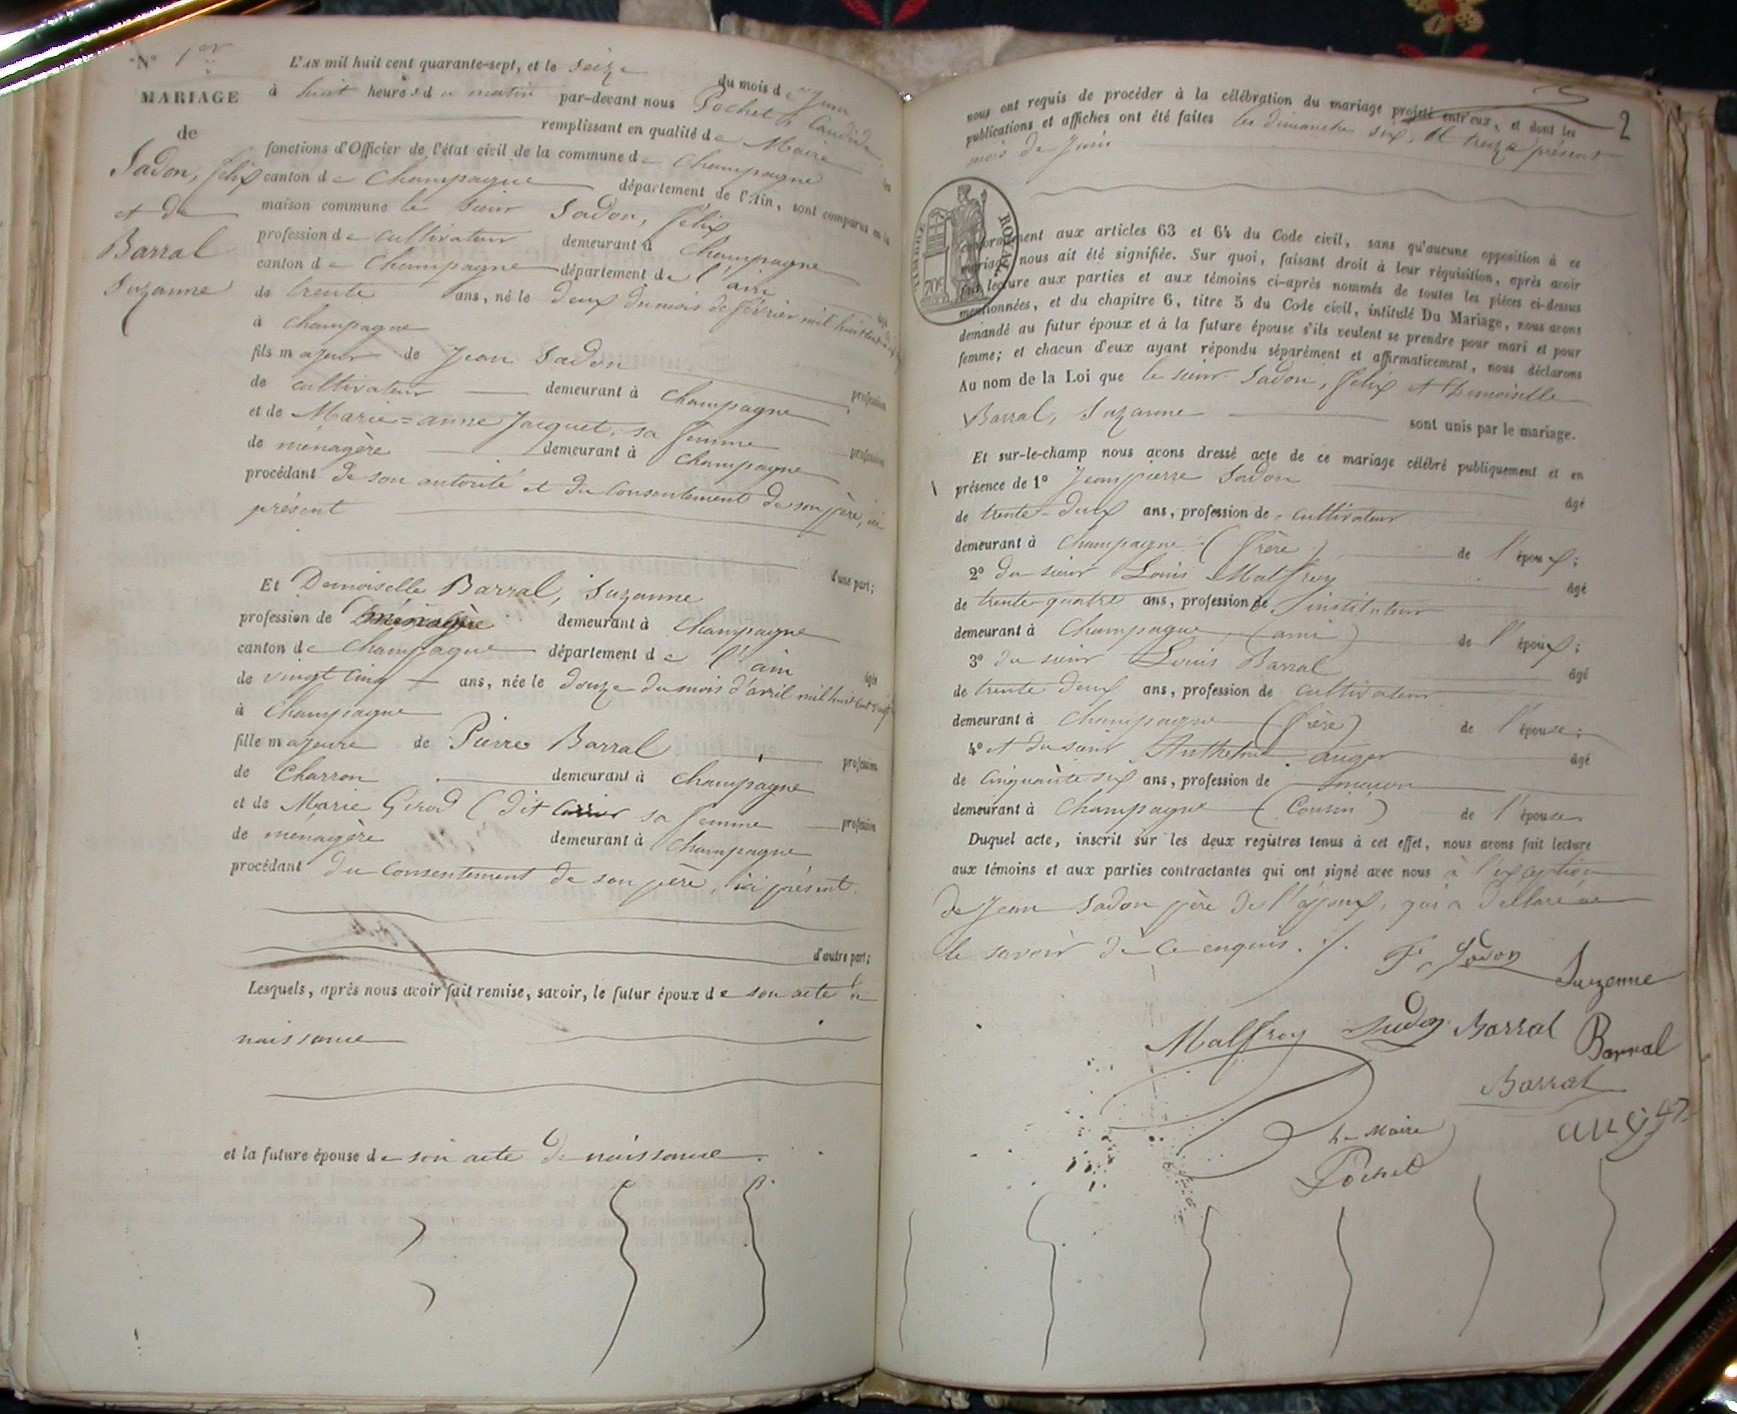 N° 1er
MARIAGE
de
Sadon, félix
et de
Barral
Suzanne
L'AN mil huit cent quarante-sept, et le seize du mois de Juin
à huit heures du matin par-devant nous Pochet Candide,
remplissant en qualité de Maire les
fonctions d'Officier de l'état civil de la commune de Champagne
canton de Champagne département de l'Ain, sont comparus en la
maison commune le sieur Sadon, félix
profession de cultivateur demeurant à Champagne
canton de Champagne département de l'ain âgé
de trente ans, né le deux du mois de février mil huit cent
à Champagne
fils majeur de Jean Sadon profession
de cultivateur demeurant à Champagne
et de Marie=anne Jacquet, sa femme profession
de ménagère demeurant à Champagne
procédant de son autorité et du consentement de son père, ici
présent
d'une part;
Et Demoiselle Barral, Suzanne
profession de ménagère demeurant à Champagne
canton de Champagne département de l'ain âgée
de vingt cinq ans, née le douze du mois d'avril mil huit cent vingt
à Champagne
fille majeure de Pierre Barral profession
de Charron demeurant à Champagne
et de Marie Girod (dit sa femme profession
de ménagère demeurant à Champagne
procédant du consentement de son père, ici présent.
d'autre part;
Lesquels, après nous avoir fait remise, savoir, le futur époux de son acte de
naissance
et la future épouse de son acte de naissance.
2
nous ont requis de procéder à la célébration du mariage projeté entr'eux, et dont les
publications et affiches ont été faites les dimanches six, et treize présent
mois de Juin
TIMBRE ROYAL
conformément aux articles 63 et 64 du Code civil, sans qu'aucune opposition à ce
mariage nous ait été signifiée. Sur quoi, faisant droit à leur réquisition, après avoir
fait lecture aux parties et aux témoins ci-après nommés de toutes les pièces ci-dessus
mentionnées, et du chapitre 6, titre 5 du Code civil, intitulé Du Mariage, nous avons
demandé au futur époux et à la future épouse s'ils veulent se prendre pour mari et pour
femme; et chacun d'eux ayant répondu séparément et affirmativement, nous déclarons
Au nom de la Loi que le sieur Sadon, félix et Demoiselle
Barral, Suzanne sont unis par le mariage.
Et sur-le-champ nous avons dressé acte de ce mariage célébré publiquement et en
présence de 1° Jean pierre Sadon âgé
de trente-deux ans, profession de cultivateur
demeurant à Champagne (frère) de l'époux;
2° du sieur Louis Malfroy âgé
de trente-quatre ans, profession de instituteur
demeurant à Champagne (ami) de l'époux;
3° du sieur Louis Barral âgé
de trente deux ans, profession de cultivateur
demeurant à Champagne (frère) de l'épouse;
4° et du sieur Anthelme auger âgé
de cinquante six ans, profession de maçon
demeurant à Champagne (Cousin) de l'épouse
Duquel acte, inscrit sur les deux registres tenus à cet effet, nous avons fait lecture
aux témoins et aux parties contractantes qui ont signé avec nous à l'exception
de Jean Sadon père de l'époux, qui a déclaré ne
le savoir de ce enquis. ./.
F. Sadon
Suzenne
Malfroy Sadon Barral Barral
Barral
le Maire
Pochet